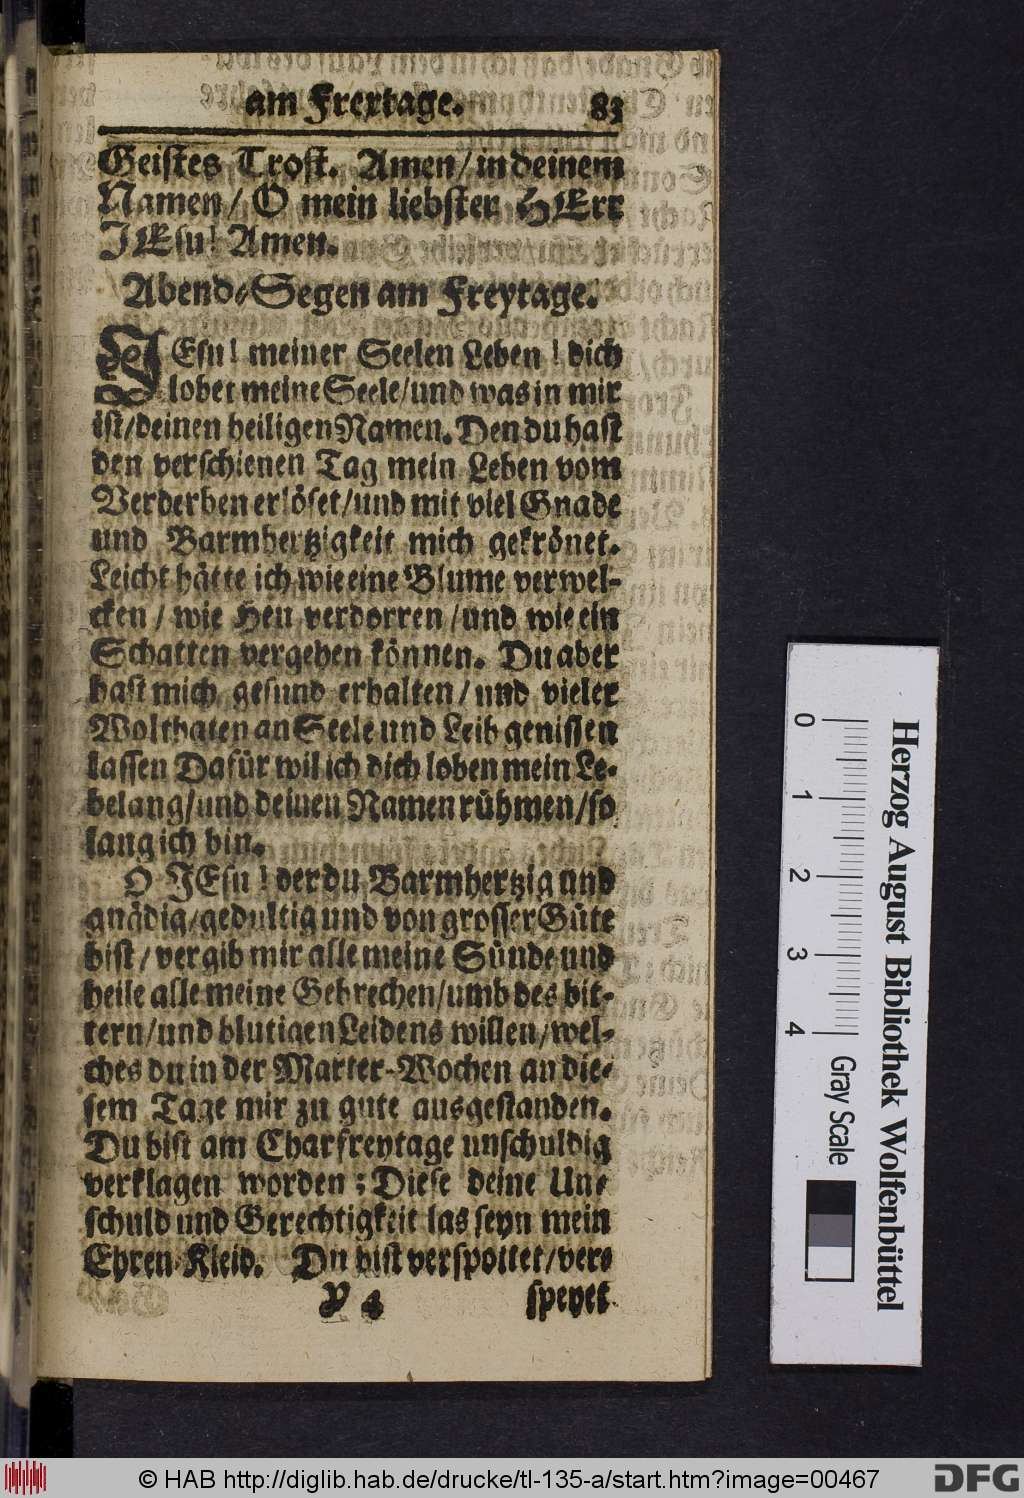 am Freytage. 83
Geistes Trost. Amen/ in deinem
Namen/ O mein liebster HErr
JEsu! Amen.
Abend-Segen am Freytage.
JEsu! meiner Seelen Leben! dich
lobet meine Seele/und was in mir
ist/deinen heiligen Namen. Den du hast
den verschienen Tag mein Leben vom
Verderben erlöset/und mit viel Gnade
und Barmhertzigkeit mich gekrönet.
Leicht hätte ich wie eine Blume verwel-
cken/ wie Heu verdorren/und wie ein
Schatten vergehen können. Du aber
hast mich gesund erhalten/ und vieler
Wolthaten an Seele und Leib genissen
lassen Dafür wil ich dich loben mein Le-
belang/und deinen Namen rühmen/so
lang ich bin.
O JEsu! der du Barmhertzig und
gnädig/gedultig und von grosser Güte
bist/ vergib mir alle meine Sünde und
heile alle meine Gebrechen/umb des bit-
tern/und blutigen Leidens willen/wel-
ches du in der Marter-Wochen an die-
sem Tage mir zu gute ausgestanden.
Du bist am Charfreytage unschuldig
verklagen worden; Diese deine Un-
schuld und Gerechtigkeit las seyn mein
Ehren-Kleid. Du bist verspottet/ver-
Y 4 speyet
0 1 2 3 4 Gray Scale
Herzog August Bibliothek Wolfenbüttel
© HAB http://diglib.hab.de/drucke/tl-135-a/start.htm?image=00467
DFG